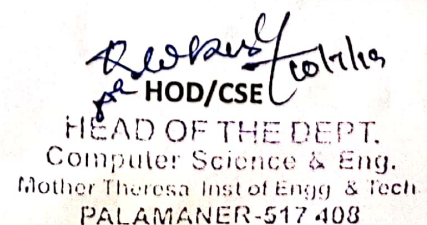 10/7/19
HOD/CSE
HEAD OF THE DEPT.
Computer Science & Eng.
Mother Theresa Inst of Engg & Tech
PALAMANER-517 408